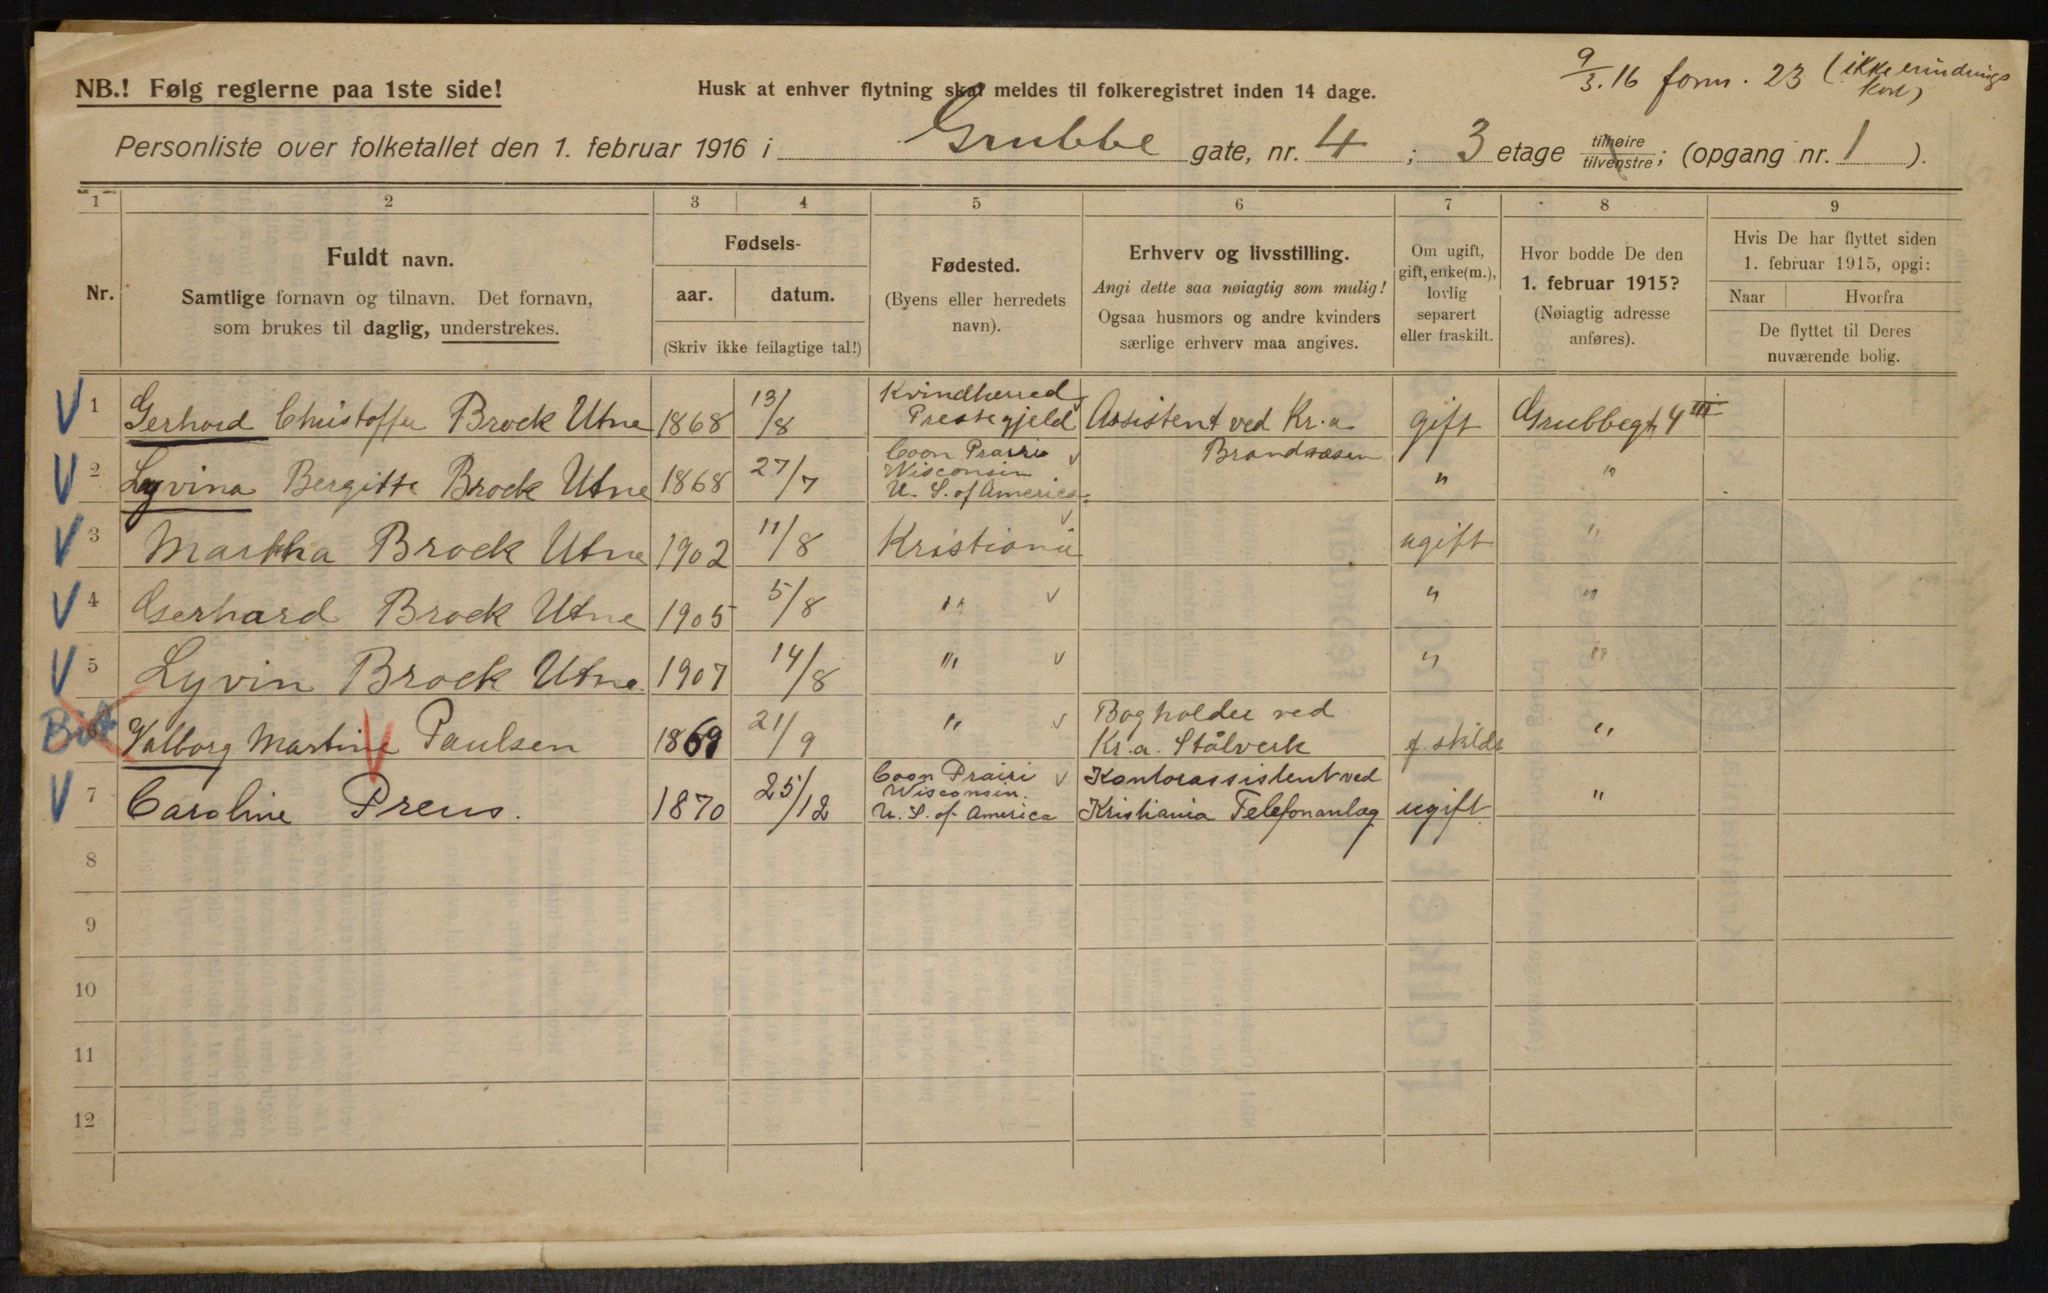 9/3.16 form. 23 (ikke erindrings
kort)
NB.! Følg reglerne paa 1ste side!
Husk at enhver flytning skal meldes til folkeregistret inden 14 dage.
Personliste over folketallet den 1. februar 1916 i Grubbe gate, nr. 4 ; 3 etage tilhøire/tilvenstre; (opgang nr. 1 ).
1 2 3 4 5 6 7 8 9
Nr.
Fuldt navn.
Samtlige fornavn og tilnavn. Det fornavn,
som brukes til daglig, understrekes.
Fødsels-
aar. datum.
(Skriv ikke feilagtige tal!)
Fødested.
(Byens eller herredets
navn).
Erhverv og livsstilling.
Angi dette saa nøiagtig som mulig!
Ogsaa husmors og andre kvinders
særlige erhverv maa angives.
Om ugift,
gift, enke(m.),
lovlig
separert
eller fraskilt.
Hvor bodde De den
1. februar 1915?
(Nøiagtig adresse
anføres).
Hvis De har flyttet siden
1. februar 1915, opgi:
Naar Hvorfra
De flyttet til Deres
nuværende bolig.
V 1 Gerhard Christoffer Brock Utne 1868 13/8 Kvindherred Prestegjeld Assistent ved Kr.a Brandvæsen gift Grubbegt 4 III
V 2 Lyvina Bergitte Brock Utne 1868 27/7 Coon Prairi Wisconsin U. S. of America " "
V 3 Martha Brock Utne 1902 11/8 Kristiania ugift "
V 4 Gerhard Brock Utne 1905 5/8 " " "
V 5 Lyvin Brock Utne 1907 14/8 " " "
6 Valborg Martine Paulsen 1869 21/9 " Bogholder ved Kr.a. Stålverk f. skildt "
V 7 Caroline Preus. 1870 25/12 Coon Prairi Wisconsin. U. S. of America Kontorassistent ved Kristiania Telefonanlæg ugift "
8
9
10
11
12